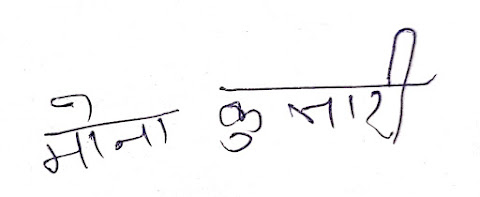 मोना कुमारी